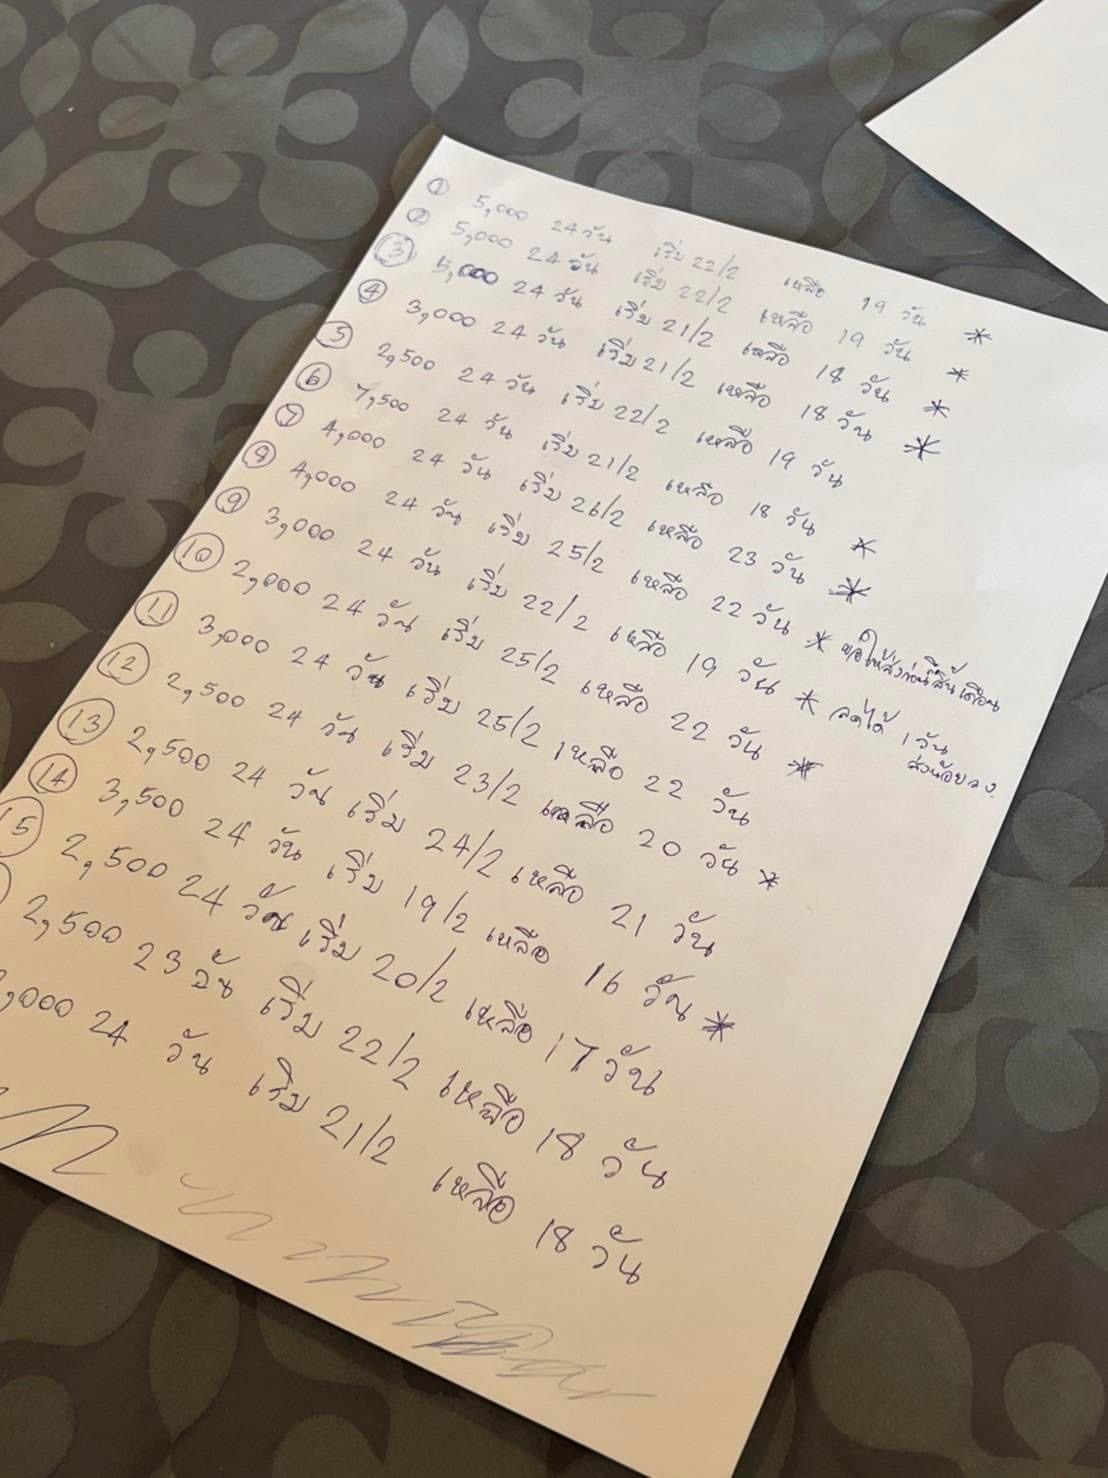 ① 5,000 24 วัน เริ่ม 22/2 เหลือ 19 วัน *
② 5,000 24 วัน เริ่ม 22/2 เหลือ 19 วัน *
③ 5,000 24 วัน เริ่ม 21/2 เหลือ 18 วัน *
④ 3,000 24 วัน เริ่ม 21/2 เหลือ 18 วัน *
⑤ 2,500 24 วัน เริ่ม 22/2 เหลือ 19 วัน
⑥ 7,500 24 วัน เริ่ม 21/2 เหลือ 18 วัน *
⑦ 4,000 24 วัน เริ่ม 26/2 เหลือ 23 วัน *
⑧ 4,000 24 วัน เริ่ม 25/2 เหลือ 22 วัน * ขอให้ส่งก่อนสิ้นเดือน
⑨ 3,000 24 วัน เริ่ม 22/2 เหลือ 19 วัน * ลดได้ 1 วัน
ส่วนน้อยลง
⑩ 2,000 24 วัน เริ่ม 25/2 เหลือ 22 วัน *
⑪ 3,000 24 วัน เริ่ม 25/2 เหลือ 22 วัน
⑫ 2,500 24 วัน เริ่ม 23/2 เหลือ 20 วัน *
⑬ 2,500 24 วัน เริ่ม 24/2 เหลือ 21 วัน
⑭ 3,500 24 วัน เริ่ม 19/2 เหลือ 16 วัน *
⑮ 2,500 24 วัน เริ่ม 20/2 เหลือ 17 วัน
2,500 23 วัน เริ่ม 22/2 เหลือ 18 วัน
,000 24 วัน เริ่ม 21/2 เหลือ 18 วัน